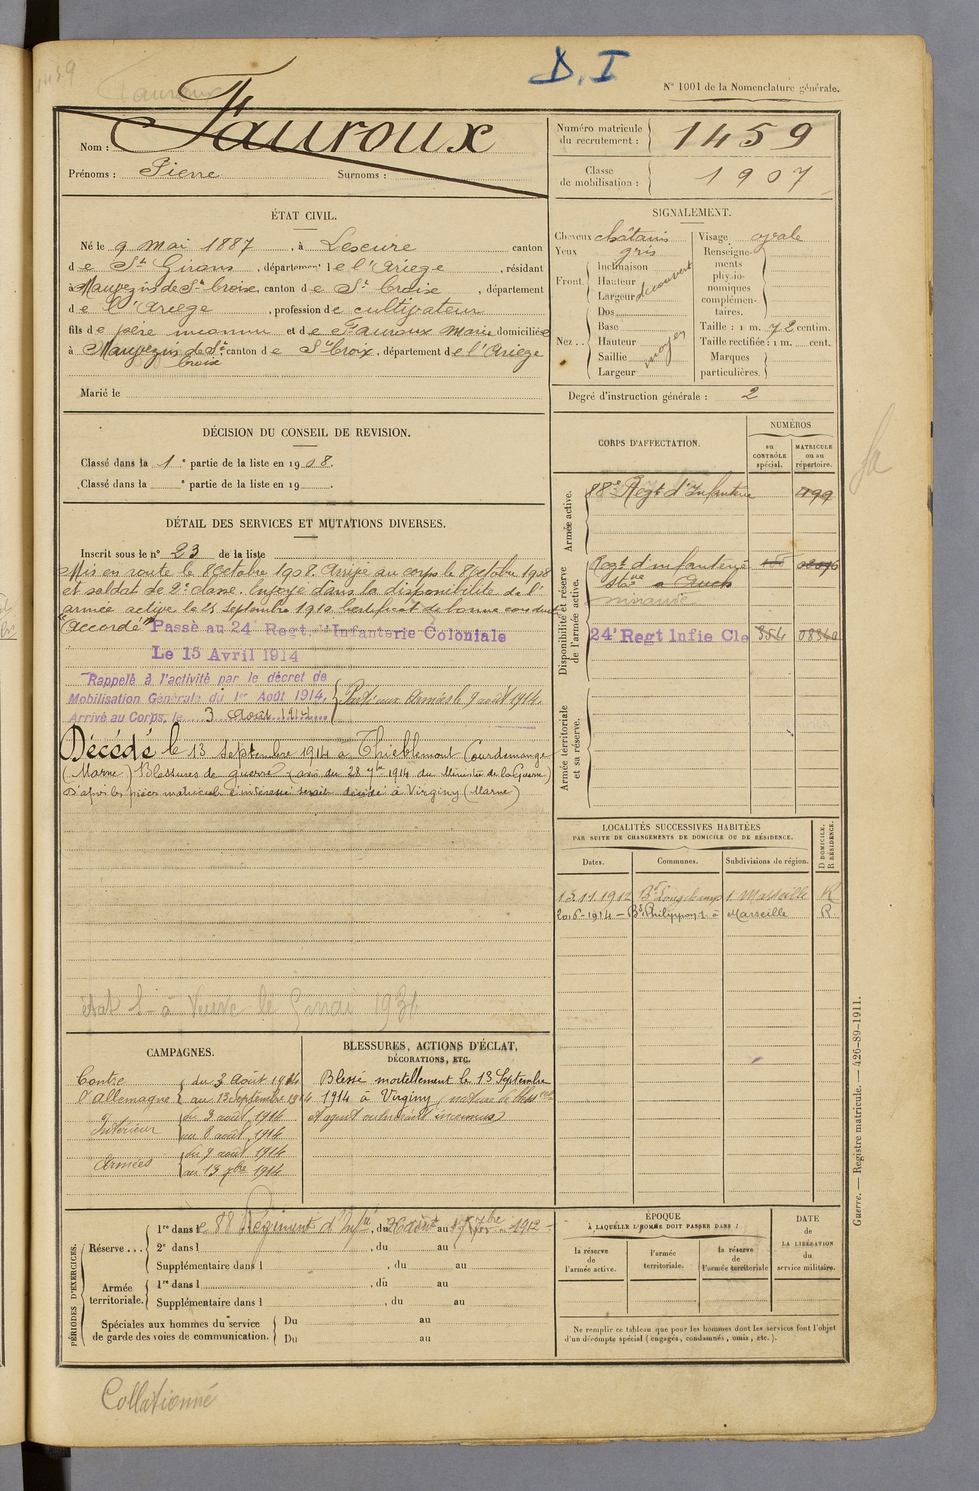 D. I
N° 1001 de la Nomenclature générale.
Nom : Fauroux
Prénoms : Pierre Surnoms :
Numéro matricule du recrutement : 1459
Classe de mobilisation : 1907
ÉTAT CIVIL.
Né le 9 mai 1887, à Lescure canton
de St Girons, département de l'Ariège, résidant
à Mauvezin de Ste Croix, canton de Ste Croix, département
de l'Ariège, profession de cultivateur
fils de père inconnu et de Fauroux Marie domiciliée
à Mauvezin de Ste Croix canton de Ste Croix, département de l'Ariège
Marié le
SIGNALEMENT.
Cheveux châtains
Yeux gris
Front. Inclinaison Hauteur Largeur découvert
Nez... Dos Base Hauteur Saillie Largeur moyen
Visage ovale
Renseignements physionomiques complémentaires.
Taille : 1 m. 72 centim.
Taille rectifiée : 1 m. cent.
Marques particulières.
Degré d'instruction générale : 2
DÉCISION DU CONSEIL DE REVISION.
Classé dans la 1e partie de la liste en 1908.
Classé dans la e partie de la liste en 19
DÉTAIL DES SERVICES ET MUTATIONS DIVERSES.
Inscrit sous le n° 23 de la liste
Mis en route le 8 Octobre 1908. Arrivé au corps le 8 Octobre 1908
et soldat de 2e classe. Envoyé dans la disponibilité de l'
armée active le 25 septembre 1910. Certificat de bonne conduite
accordé
Passé au 24 Regt d'Infanterie Coloniale
Le 15 Avril 1914
Rappelé à l'activité par le décret de
Mobilisation Générale du 1er Août 1914.
Arrivé au Corps, le 3 Août 1914
aux Armées le 9 août 1914.
Décédé le 13 Septembre 1914 à Thiéblemont Courdemange
(Marne) Blessures de guerre (avis du 28 7bre 1914 du Ministre de la Guerre)
D'après les pièces matricule l'intéressé serait décédé à Virginy (Marne)
CORPS D'AFFECTATION.
NUMÉROS
au CONTRÔLE spécial.
MATRICULE ou au répertoire.
Armée active.
88e Regt d'Infanterie 499
Disponibilité et réserve de l'armée active.
Regt d'infanterie
à Auch
24e Regt Infie Cle 354
Armée territoriale et sa réserve.
LOCALITÉS SUCCESSIVES HABITÉES
PAR SUITE DE CHANGEMENTS DE DOMICILE OU DE RÉSIDENCE.
Dates. Communes. Subdivisions de région. D DOMICILE. R RÉSIDENCE.
Bd Longchamp 1. Marseille R
Bd Philippon 1. à Marseille R
CAMPAGNES.
Contre l'Allemagne du 3 Août 1914
au 13 Septembre 1914
Intérieur du 3 août 1914
au 8 août 1914
Armées du 9 août 1914
au 13 7bre 1914
BLESSURES, ACTIONS D'ÉCLAT,
DÉCORATIONS, ETC.
Blessé mortellement le 13 Septembre
1914 à Virginy
PÉRIODES D'EXERCICES.
Réserve... 1re dans le 88 Régiment d'Infie, du au 7bre 1912
2e dans l , du au
Supplémentaire dans l , du au
Armée territoriale. 1re dans l , du au
Supplémentaire dans l , du au
Spéciales aux hommes du service de garde des voies de communication. Du au
Du au
ÉPOQUE
À LAQUELLE L'HOMME DOIT PASSER DANS :
la réserve de l'armée active.
l'armée territoriale.
la réserve de l'armée territoriale
DATE de LA LIBÉRATION du service militaire.
Ne remplir ce tableau que pour les hommes dont les services font l'objet
d'un décompte spécial (engagés, condamnés, omis, etc.).
Guerre. — Registre matricule. — 426-89-1911.
Collationné